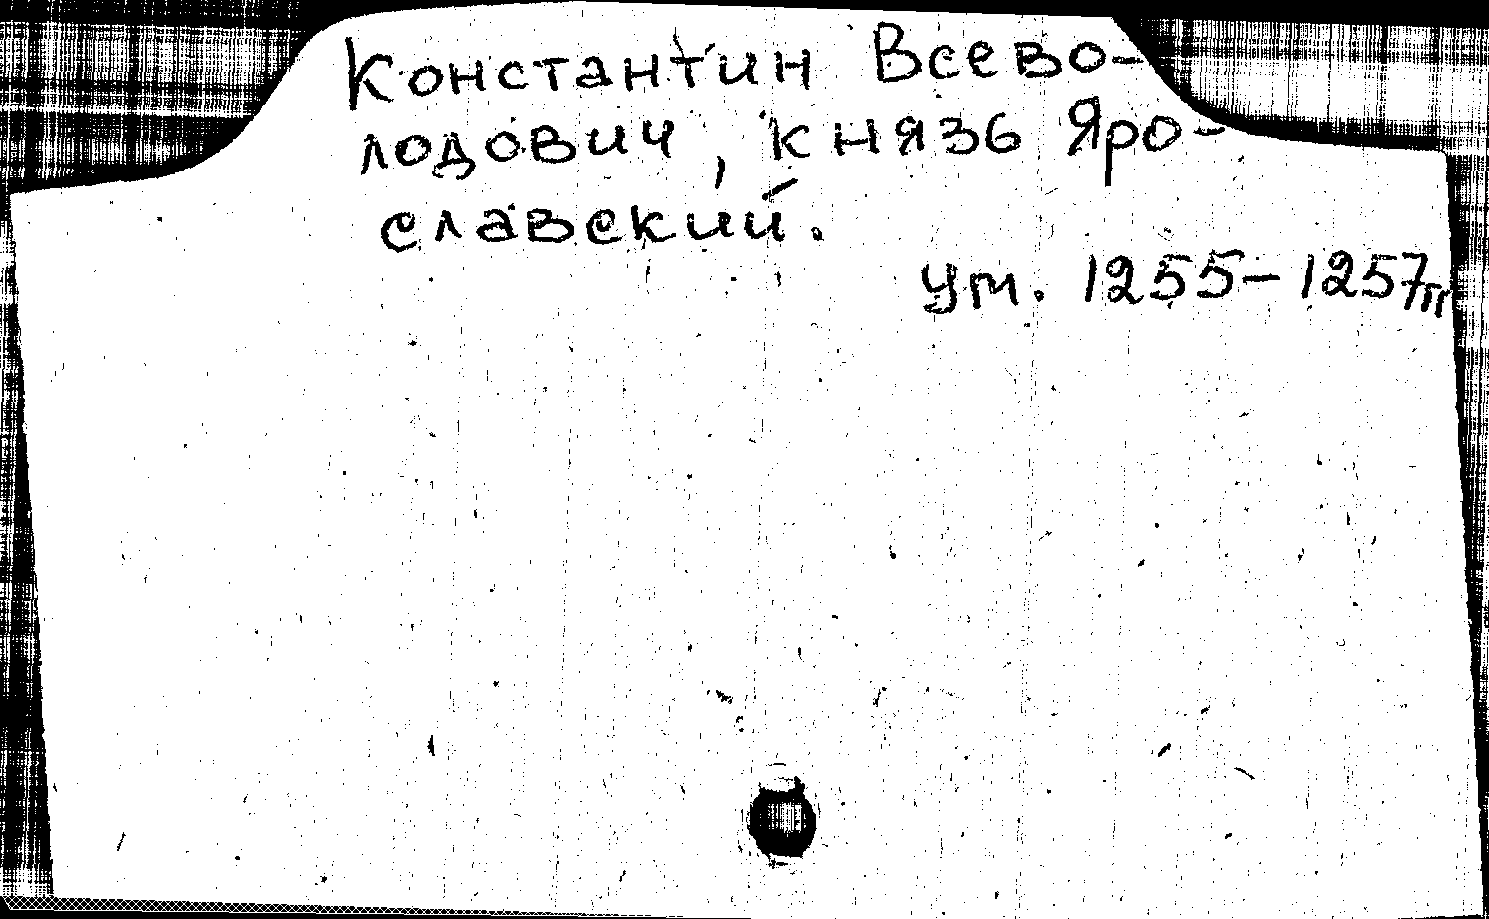 Константин Всево-
лодович, князь Яро-
славский.
ум. 1255-1257гг